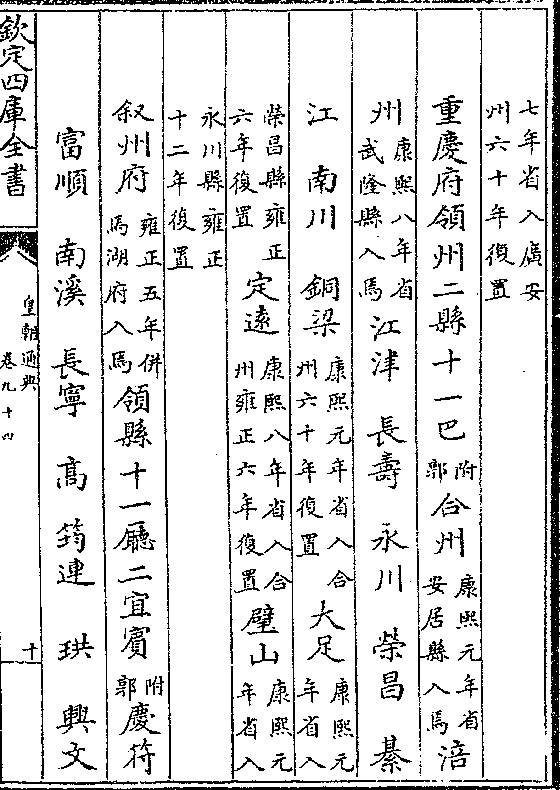 七年省入廣安州六十年復置
重慶府領州二縣十一巴附郭合州康熙元年省安居縣入焉涪
州康熙八年省武隆縣入焉江津 長壽 永川 榮昌 綦
江 南川 銅梁康熙元年省入合州六十年復置大足康熙元年省入
榮昌縣雍正六年復置定遠康熙八年省入合州雍正六年復置璧山康熙元年省入
永川縣雍正十二年復置
叙州府雍正五年併馬湖府入焉領縣十一廳二宜賓附郭慶符
富順 南溪 長寧 高 筠連 珙 興文
欽定四庫全書
皇朝通典
卷九十四
十